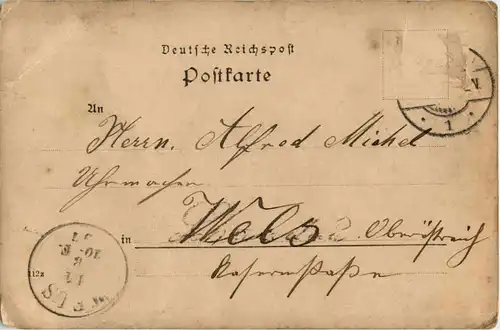 Deutsche Reichspost
Postkarte
An
Herrn, Alfred Michel
Uhrmacher
in Wels Oberöstreich
Kasernstraße
112z
WELS
1